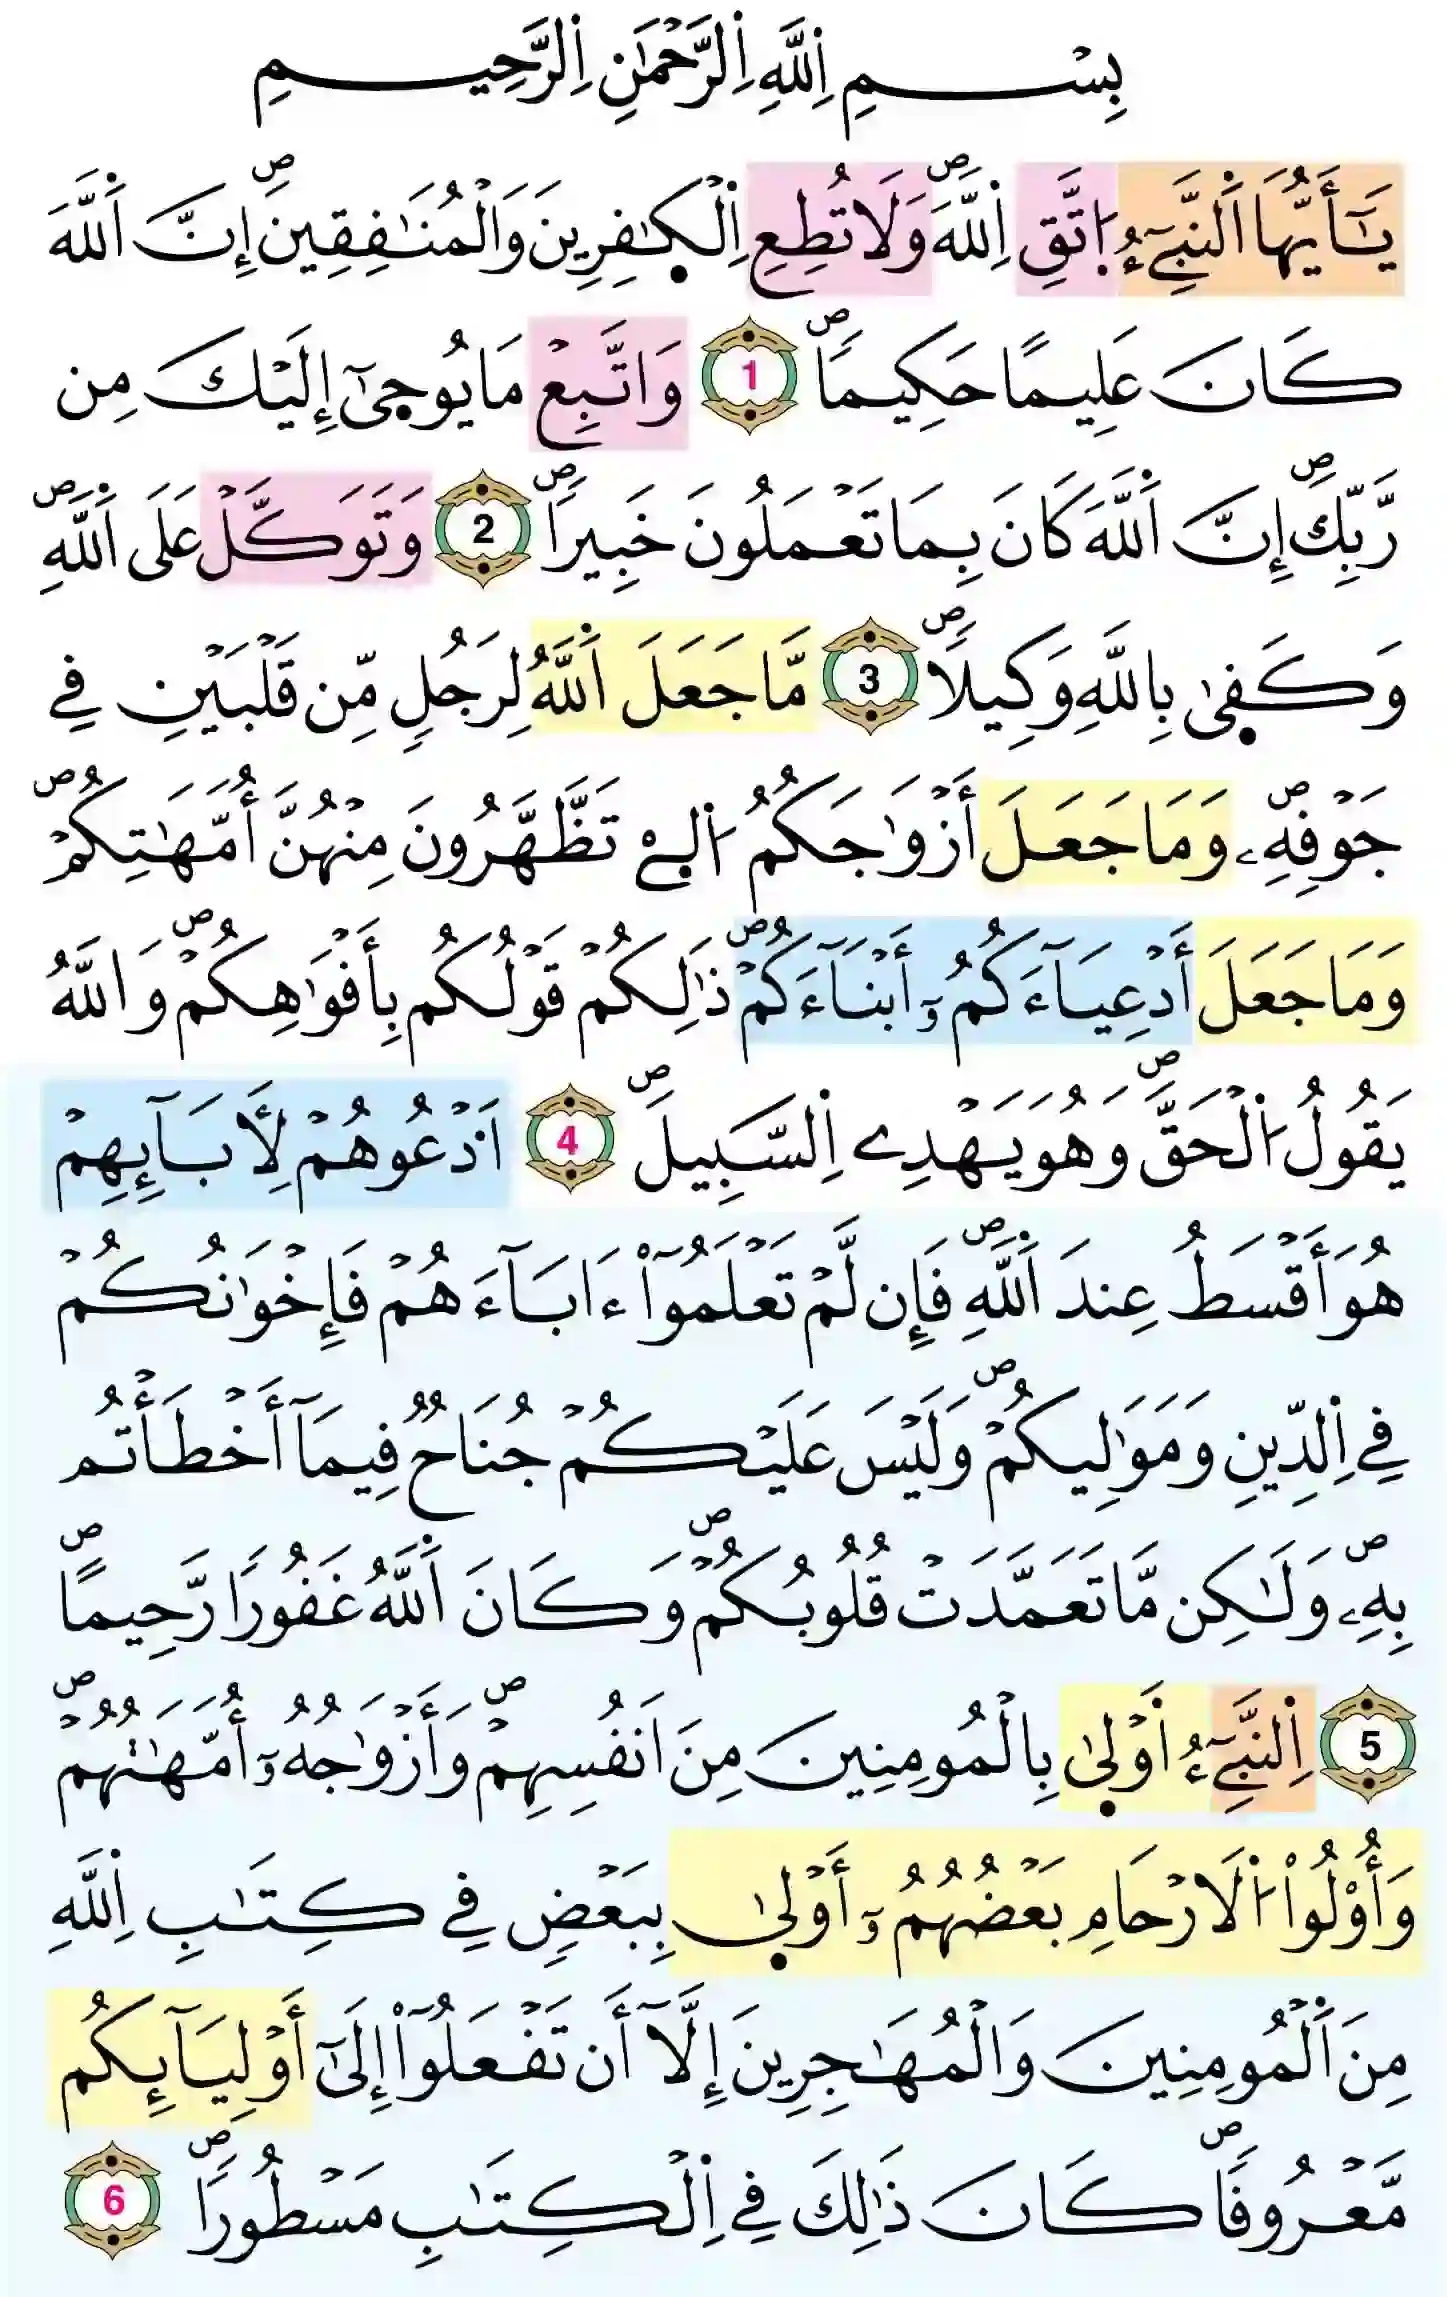 بِسْمِ اِ۬للَّهِ اِ۬لرَّحْمَٰنِ اِ۬لرَّحِيمِ
يَٰٓأَيُّهَا اَ۬لنَّبِےٓءُ اِ۪تَّقِ اِ۬للَّهَۖ وَلَا تُطِعِ اِ۬لْكٰ۪فِرِينَ وَالْمُنَٰفِقِينَۖ إِنَّ اَ۬للَّهَ
كَانَ عَلِيمًا حَكِيمًاۖ 1 وَاتَّبِعْ مَا يُوح۪يٰٓ إِلَيْكَ مِن
رَّبِّكَۖ إِنَّ اَ۬للَّهَ كَانَ بِمَا تَعْمَلُونَ خَبِيراًۖ 2 وَتَوَكَّلْ عَلَى اَ۬للَّهِۖ
وَكَف۪يٰ بِاللَّهِ وَكِيلًاۖ 3 مَّا جَعَلَ اَ۬للَّهُ لِرَجُلٍ مِّن قَلْبَيْنِ فِے
جَوْفِهِۦۖ وَمَا جَعَلَ أَزْوَٰجَكُمُ اُ۬لَٰٓـِٔے تَظَّهَّرُونَ مِنْهُنَّ أُمَّهَٰتِكُمْۖ
وَمَا جَعَلَ أَدْعِيَآءَكُمُۥٓ أَبْنَآءَكُمْۖ ذَٰلِكُمْ قَوْلُكُم بِأَفْوَٰهِكُمْۖ وَاللَّهُ
يَقُولُ اُ۬لْحَقَّۖ وَهُوَ يَهْدِے اِ۬لسَّبِيلَۖ 4 اَ۟دْعُوهُمْ لِأٓبَآئِهِمْ
هُوَ أَقْسَطُ عِندَ اَ۬للَّهِۖ فَإِن لَّمْ تَعْلَمُوٓاْ ءَابَآءَهُمْ فَإِخْوَٰنُكُمْ
فِے اِ۬لدِّينِ وَمَوَٰلِيكُمْۖ وَلَيْسَ عَلَيْكُمْ جُنَاحٌ فِيمَآ أَخْطَأْتُم
بِهِۦۖ وَلَٰكِن مَّا تَعَمَّدَتْ قُلُوبُكُمْۖ وَكَانَ اَ۬للَّهُ غَفُورًا رَّحِيمًاۖ
5 اِ۬لنَّبِےٓءُ اَ۬وْل۪يٰ بِالْمُومِنِينَ مِنَ اَنفُسِهِمْۖ وَأَزْوَٰجُهُۥٓ أُمَّهَٰتُهُمْۖ
وَأُوْلُواْ اُ۬لَارْحَامِ بَعْضُهُمُۥٓ أَوْل۪يٰ بِبَعْضٍ فِے كِتَٰبِ اِ۬للَّهِ
مِنَ اَ۬لْمُومِنِينَ وَالْمُهَٰجِرِينَ إِلَّآ أَن تَفْعَلُوٓاْ إِلَىٰٓ أَوْلِيَآئِكُم
مَّعْرُوفًاۖ كَانَ ذَٰلِكَ فِے اِ۬لْكِتَٰبِ مَسْطُوراًۖ 6